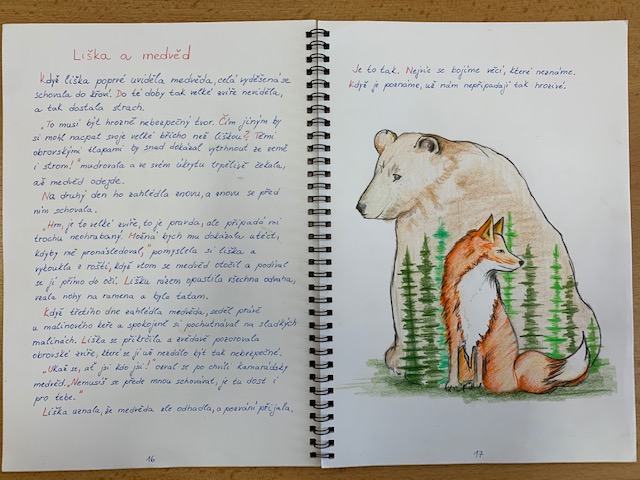 Liška a medvěd
Když liška poprvé uviděla medvěda, celá vyděšená se
schovala do křoví. Do té doby tak velké zvíře neviděla,
a tak dostala strach.
„To musí být hrozně nebezpečný tvor. Čím jiným by
si mohl nacpat svoje velké břicho než liškou? Těmi
obrovskými tlapami by snad dokázal vytrhnout ze země
i strom!" mudrovala a ve svém úkrytu trpělivě čekala,
až medvěd odejde.
Na druhý den ho zahlédla znovu, a znovu se před
ním schovala.
„Hm, je to velké zvíře, to je pravda, ale připadá mi
trochu neohrabaný. Možná bych mu dokázala utéct,
kdyby mě pronásledoval," pomyslela si liška a
vykoukla z roští, když vtom se medvěd otočil a podíval
se jí přímo do očí. Lišku rázem opustila všechna odvaha,
vzala nohy na ramena a byla tatam.
Když třetího dne zahlédla medvěda, seděl právě
u malinového keře a spokojeně si pochutnával na sladkých
malinách. Liška se přikrčila a zvědavě pozorovala
obrovské zvíře, které se jí už nezdálo být tak nebezpečné.
„Ukaž se, ať jsi kdo jsi!" ozval se po chvíli kamarádsky
medvěd. „Nemusíš se přede mnou schovávat, je tu dost i
pro tebe."
Liška uznala, že medvěda zle odhadla, a pozvání přijala.
16
Je to tak. Nejvíc se bojíme věcí, které neznáme.
Když je poznáme, už nám nepřipadají tak hrozivé.
17